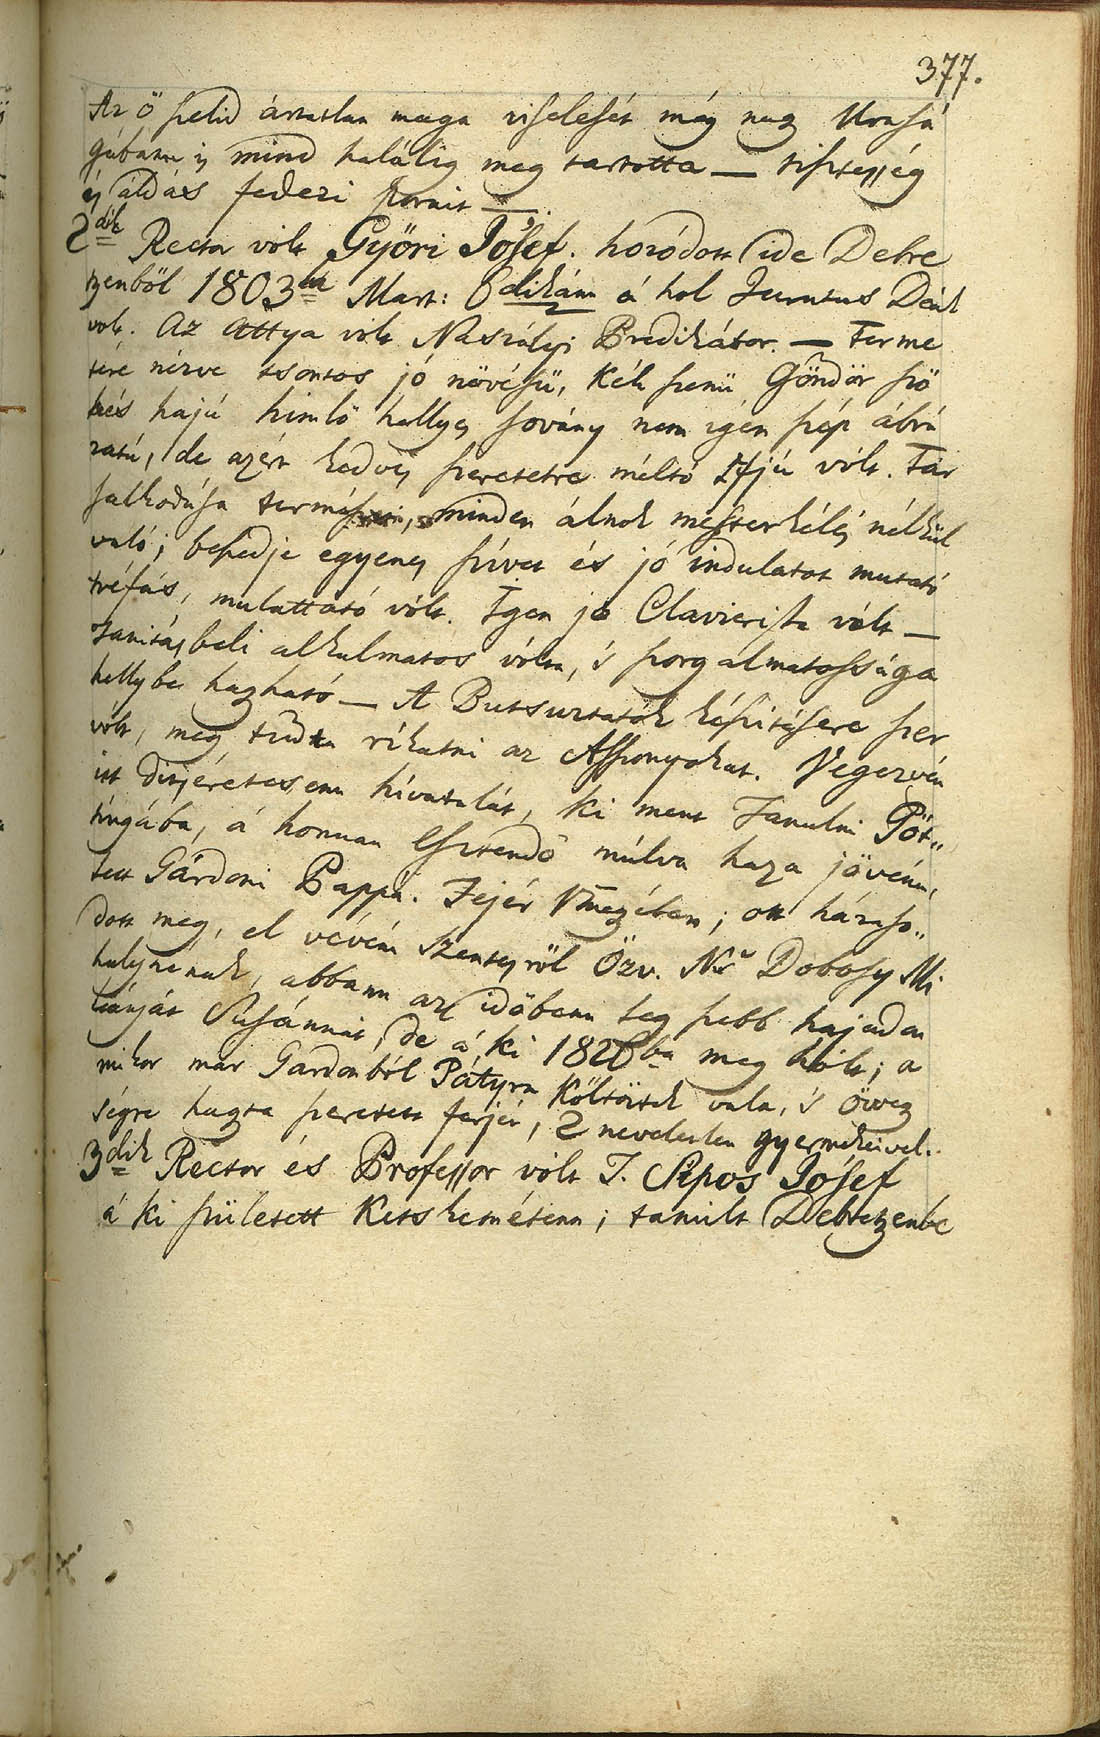 377.
Az ö szelid ártatlan maga viselését még nagy Uraſá
gábann is mind halálig meg tartotta — tisztesség
és áldás fedezi porait —.
2dik Rector vólt Györi Jósef. hozódott ide Debre
tzenböl 1803ba Mart: 6dikánn á hol Juratus Deák
vólt. Az Attya vólt Naszályi Predikátor. — Terme
tére nézve tsontos jó növésü, Kék szemü Göndör szö
kés hajú himlö hellyes sovány nem igen szép ábrá
zatú, de azért kedves szeretetre méltó Ifjú vólt. Tár
salkodása termeſzeti, minden álnok mesterkélés nélkül
való; beszedje egyenes szívet és jó indulatot mutató
tréfás, mulattató vólt. Igen jo Clavierista vólt —
Tanitásbeli alkalmatos vólta, 's szorgalmatossága
hellybe hagyható — A Butsuztatók készitésére szer
vólt, meg tudta rikatni az Aszszonyokat. Vegezvén
itt ditséretesenn hivatalát, ki ment Tanulni Göt„
tingába, á honnan Esztendö múlva haza jövénn,
lett Gárdoni Pappá. Fejér Vmegyében; ott házaso„
dott meg, el vévén Szentesröl Özv. Ns Dobosy Mi
halynenak, abbann az idöbenn leg szebb hajadon
leányát Susánnát, de á ki 1826ba meg hólt; a
mikor már Gárdonból Pátyra Költöztek vala, 's özvegy
ségre hagyta szeretett ferjét, 2 neveletlen gyermekeivel.
3dik Rector és Professor vólt T. Sipos Jósef
á ki született Ketskemétenn; tanúlt Debretzenbe